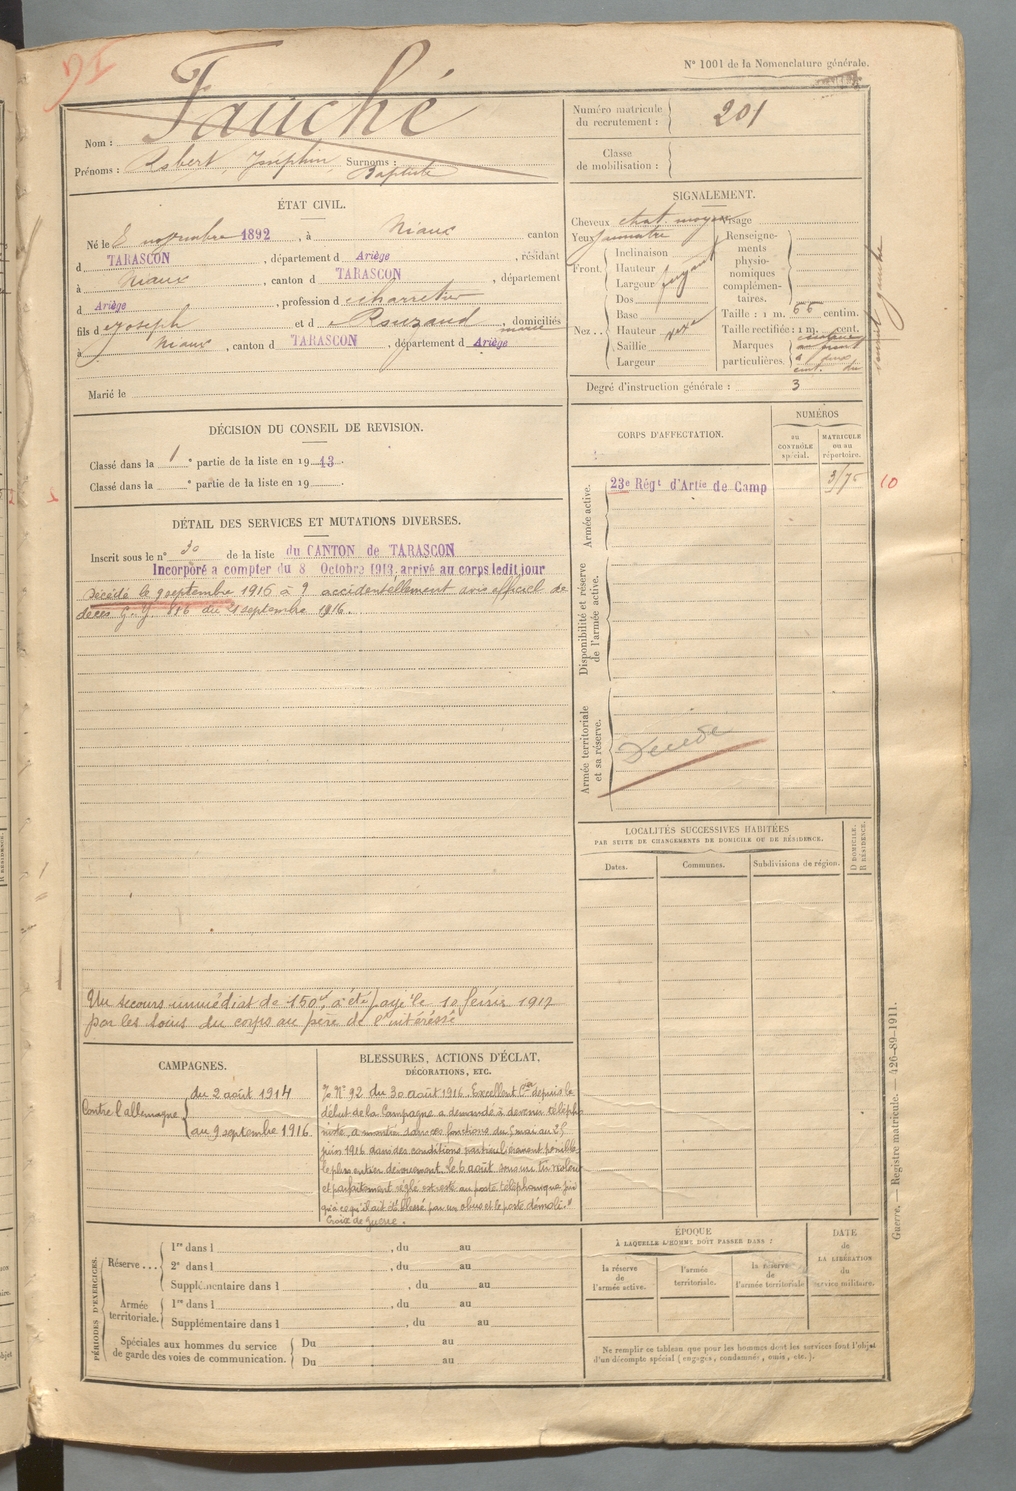 91
N° 1001 de la Nomenclature générale.
Fauché
Nom :
Prénoms : Albert, Joséphin, Surnoms :
Baptiste
Numéro matricule
du recrutement : 201
Classe
de mobilisation :
ÉTAT CIVIL.
Né le 2 novembre 1892, à Niaux canton
d TARASCON, département d Ariège, résidant
à Niaux, canton d TARASCON, département
d Ariège, profession d charretier
fils d Joseph et d Rouzaud marie, domiciliés
à Niaux, canton d TARASCON, département d Ariège
Marié le
SIGNALEMENT.
Cheveux chat. moyen Visage
Yeux jaunâtre
Front. Inclinaison
Hauteur
Largeur fuyant
Nez .. Dos
Base
Hauteur
Saillie
Largeur
Renseigne-
ments
physio-
nomiques
complémen-
taires.
Taille : 1 m. 66 centim.
Taille rectifiée : 1 m. cent.
Marques
particulières.
cicatrice
au front
à deux
cent. du
sourcil gauche
Degré d'instruction générale : 3
DÉCISION DU CONSEIL DE REVISION.
Classé dans la 1 e partie de la liste en 19 13.
Classé dans la e partie de la liste en 19 .
CORPS D'AFFECTATION.
NUMÉROS
au
CONTRÔLE
spécial.
MATRICULE
ou au
répertoire.
Armée active.
23e Régt d'Artie de Camp
10
Disponibilité et réserve
de l'armée active.
Armée territoriale
et sa réserve.
Décédé
DÉTAIL DES SERVICES ET MUTATIONS DIVERSES.
Inscrit sous le n° 30 de la liste du CANTON de TARASCON
Incorporé a compter du 8 Octobre 1913, arrivé au corps ledit jour
Décédé le 9 septembre 1916 à 9 accidentellement avis officiel de
décès G. Y. 816 du 21 septembre 1916.
Un secours immédiat de 150f a été payé le 10 février 1917
par les soins du corps au père de l'intéressé
LOCALITÉS SUCCESSIVES HABITÉES
PAR SUITE DE CHANGEMENTS DE DOMICILE OU DE RÉSIDENCE.
Dates.
Communes.
Subdivisions de région.
D DOMICILE.
R RÉSIDENCE.
CAMPAGNES.
Contre l'allemagne
du 2 août 1914
au 9 septembre 1916
BLESSURES, ACTIONS D'ÉCLAT,
DÉCORATIONS, ETC.
N° 92 du 30 août 1916. Excellent depuis le
début de la Campagne a demandé à devenir télépho
niste, a montré dans ces fonctions du 5 mai au 25
juin 1916 dans des conditions particulièrement pénibles
le plus entier dévouement. Le 6 août sous un tir violent
et parfaitement réglé est resté au poste téléphonique jus
qu'à ce qu'il ait été blessé par un obus et le poste démoli."
Croix de guerre.
PÉRIODES D'EXERCICES.
Réserve ...
1re dans l , du au
2e dans l , du au
Supplémentaire dans l , du au
Armée
territoriale.
1re dans l , du au
Supplémentaire dans l , du au
Spéciales aux hommes du service
de garde des voies de communication.
Du au
Du au
ÉPOQUE
À LAQUELLE L'HOMME DOIT PASSER DANS :
la réserve
de
l'armée active.
l'armée
territoriale.
la réserve
de
l'armée territoriale
DATE
de
LA LIBÉRATION
du
service militaire.
Ne remplir ce tableau que pour les hommes dont les services font l'objet
d'un décompte spécial (engagés, condamnés, omis, etc.).
Guerre. — Registre matricule. — 426-89-1911.